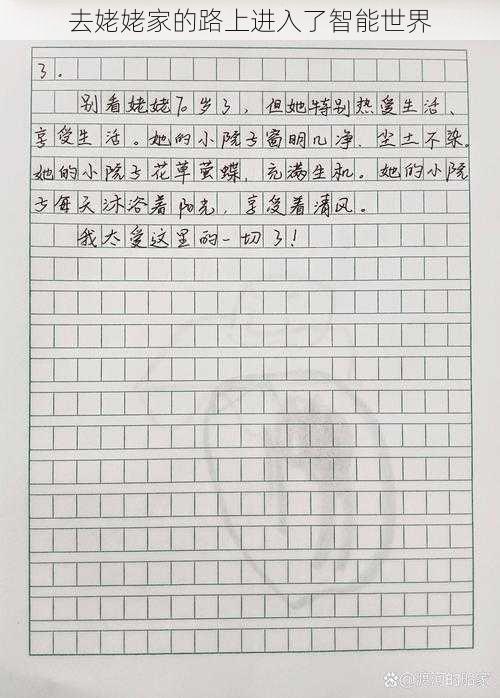 去姥姥家的路上进入了智能世界
了。
别看姥姥70岁了，但她特别热爱生活、
享受生活。她的小院子窗明几净，尘土不染。
她的小院子花草萤蝶，充满生机。她的小院
子每天沐浴着阳光，享受着清风。
我太爱这里的一切了！
@渡河的胎家